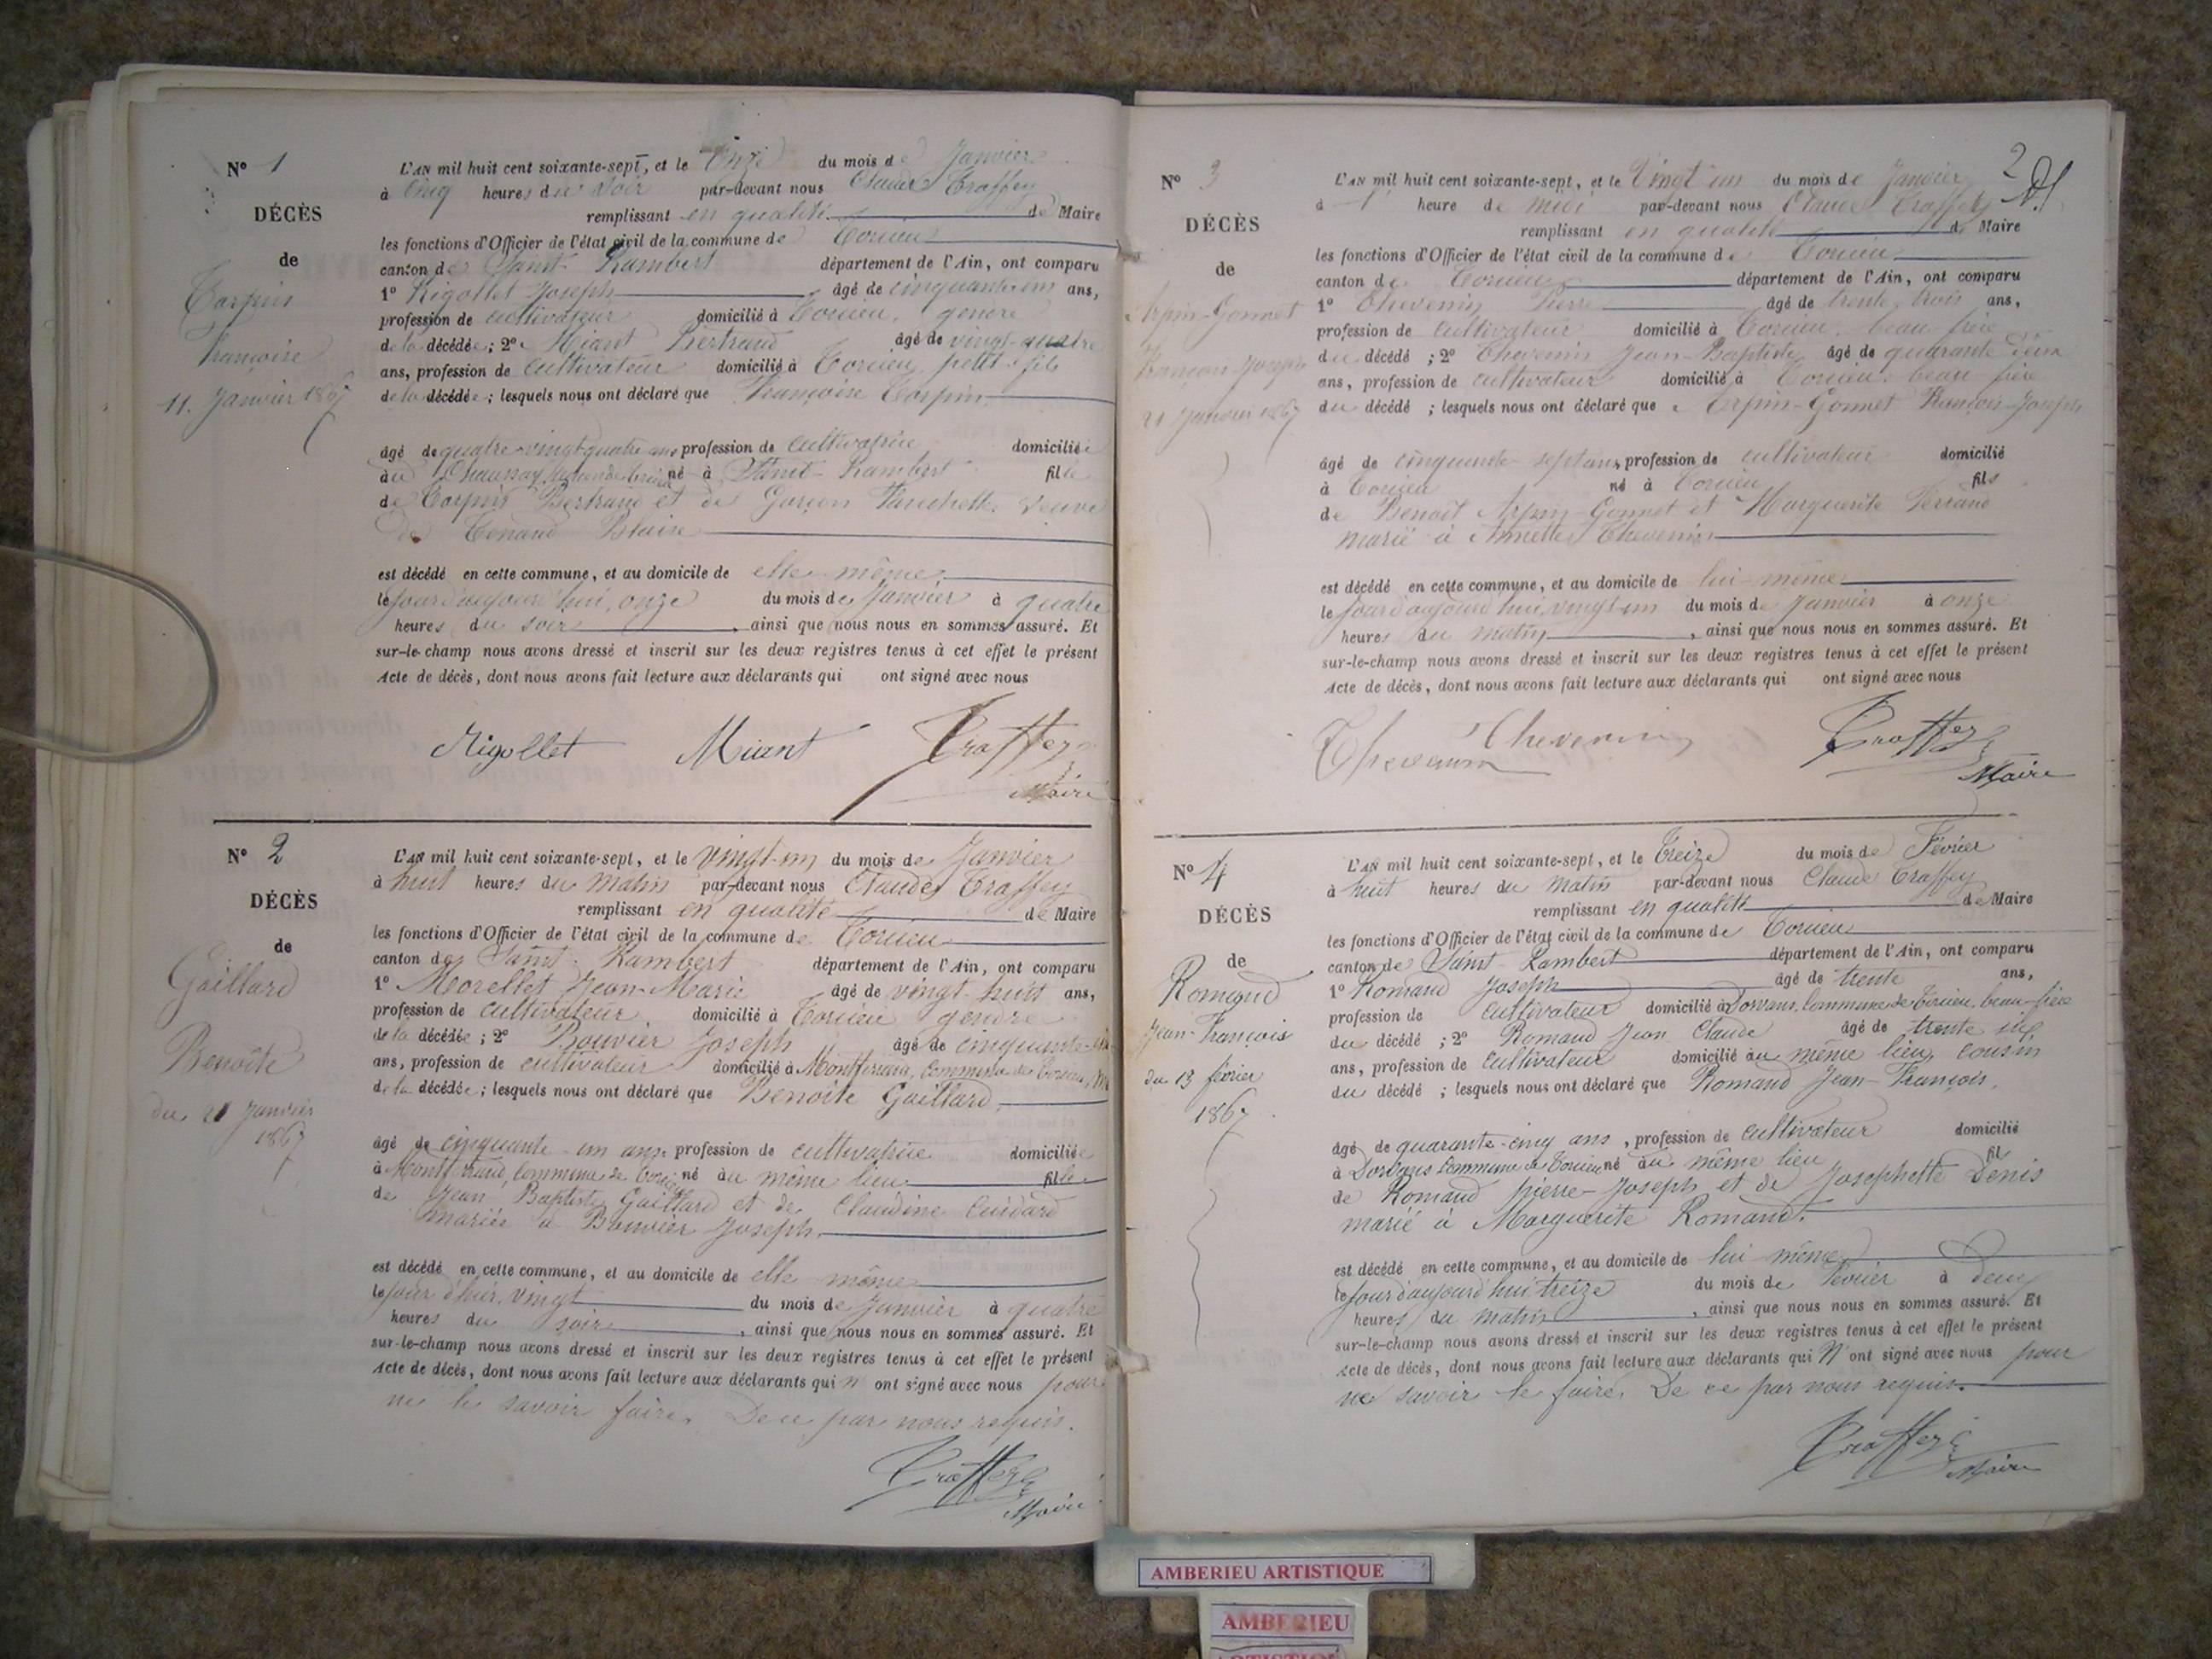 N° 1
DÉCÈS
de
Corpin
Françoise
11. Janvier 1867
L'AN mil huit cent soixante-sept, et le Onze du mois de Janvier
à Cinq heures du soir par-devant nous Claude Traffey
remplissant en qualité de Maire
les fonctions d'Officier de l'état civil de la commune de Torcieu
canton de Saint-Rambert département de l'Ain, ont comparu
1° Rigollet Joseph âgé de cinquante-un ans,
profession de cultivateur domicilié à Torcieu, gendre
de la décédée ; 2° Miant Bertrand âgé de vingt-quatre
ans, profession de cultivateur domicilié à Torcieu, petit-fils
de la décédée ; lesquels nous ont déclaré que Françoise Corpin
âgé de quatre-vingt-quatre ans profession de cultivatrice domiciliée
né à Saint-Rambert fille
de Corpin Bertrand et de Fanchette veuve
de Tenand Blaise
est décédé en cette commune, et au domicile de elle même
le jour d'aujourd'hui, onze du mois de Janvier à quatre
heures du soir , ainsi que nous nous en sommes assuré. Et
sur-le-champ nous avons dressé et inscrit sur les deux registres tenus à cet effet le présent
Acte de décès, dont nous avons fait lecture aux déclarants qui ont signé avec nous
Rigollet Miant Traffey
Maire
N° 2
DÉCÈS
de
Gaillard
Benoîte
du 21 Janvier
1867
L'AN mil huit cent soixante-sept, et le vingt-un du mois de Janvier
à huit heures du matin par-devant nous Claude Traffey
remplissant en qualité de Maire
les fonctions d'Officier de l'état civil de la commune de Torcieu
canton de Saint-Rambert département de l'Ain, ont comparu
1° Morellet Jean-Marie âgé de vingt-huit ans,
profession de cultivateur domicilié à Torcieu gendre
de la décédée ; 2° Bouvier Joseph âgé de cinquante
ans, profession de cultivateur domicilié à Montferrand, commune de Torcieu,
de la décédée ; lesquels nous ont déclaré que Benoîte Gaillard
âgé de cinquante-un ans profession de cultivatrice domiciliée
à Montferrand, commune de Torcieu né au même lieu fille
de Jean-Baptiste Gaillard et de Claudine Cuidard
mariée à Bouvier Joseph
est décédé en cette commune, et au domicile de elle même
le jour d'hier, vingt du mois de Janvier à quatre
heures du soir , ainsi que nous nous en sommes assuré. Et
sur-le-champ nous avons dressé et inscrit sur les deux registres tenus à cet effet le présent
Acte de décès, dont nous avons fait lecture aux déclarants qui n' ont signé avec nous pour
ne le savoir faire. De ce par nous requis.
Traffey
Maire
2
N° 3
DÉCÈS
de
Arpin-Gonnet
François-Joseph
21 Janvier 1867
L'AN mil huit cent soixante-sept, et le Vingt-un du mois de Janvier
à 1 heure de midi par-devant nous Claude Traffey
remplissant en qualité de Maire
les fonctions d'Officier de l'état civil de la commune de Torcieu
canton de Torcieu département de l'Ain, ont comparu
1° Thevenin Pierre âgé de trente-trois ans,
profession de cultivateur domicilié à Torcieu beau-frère
du décédé ; 2° Thevenin Jean-Baptiste âgé de quarante-deux
ans, profession de cultivateur domicilié à Torcieu beau-frère
du décédé ; lesquels nous ont déclaré que Arpin-Gonnet François-Joseph
âgé de cinquante-sept ans, profession de cultivateur domicilié
à Torcieu né à Torcieu fils
de Benoît Arpin-Gonnet et Marguerite Ferrand
marié à Annette Thevenin
est décédé en cette commune, et au domicile de lui-même
le jour d'aujourd'hui, vingt-un du mois de Janvier à onze
heures du matin , ainsi que nous nous en sommes assuré. Et
sur-le-champ nous avons dressé et inscrit sur les deux registres tenus à cet effet le présent
Acte de décès, dont nous avons fait lecture aux déclarants qui ont signé avec nous
Thevenin Thevenin Traffey
Maire
N° 4
DÉCÈS
de
Romand
Jean-François
du 13 février
1867
L'AN mil huit cent soixante-sept, et le Treize du mois de Février
à huit heures du matin par-devant nous Claude Traffey
remplissant en qualité de Maire
les fonctions d'Officier de l'état civil de la commune de Torcieu
canton de Saint-Rambert département de l'Ain, ont comparu
1° Romand Joseph âgé de trente ans,
profession de cultivateur domicilié à Dorvans, Commune de Torcieu, beau-frère
du décédé ; 2° Romand Jean Claude âgé de trente
ans, profession de cultivateur domicilié au même lieu, cousin
du décédé ; lesquels nous ont déclaré que Romand Jean-François,
âgé de quarante-cinq ans , profession de cultivateur domicilié
à Dorvans Commune de Torcieu né au même lieu fils
de Romand pierre-Joseph et de Josephette Denis
marié à Marguerite Romand.
est décédé en cette commune, et au domicile de lui même
le jour d'aujourd'hui treize du mois de Février à deux
heures du matin , ainsi que nous nous en sommes assuré. Et
sur-le-champ nous avons dressé et inscrit sur les deux registres tenus à cet effet le présent
Acte de décès, dont nous avons fait lecture aux déclarants qui N' ont signé avec nous pour
ne savoir le faire. De ce par nous requis.
Traffey
Maire
AMBERIEU ARTISTIQUE
AMBERIEU
ARTISTIQUE